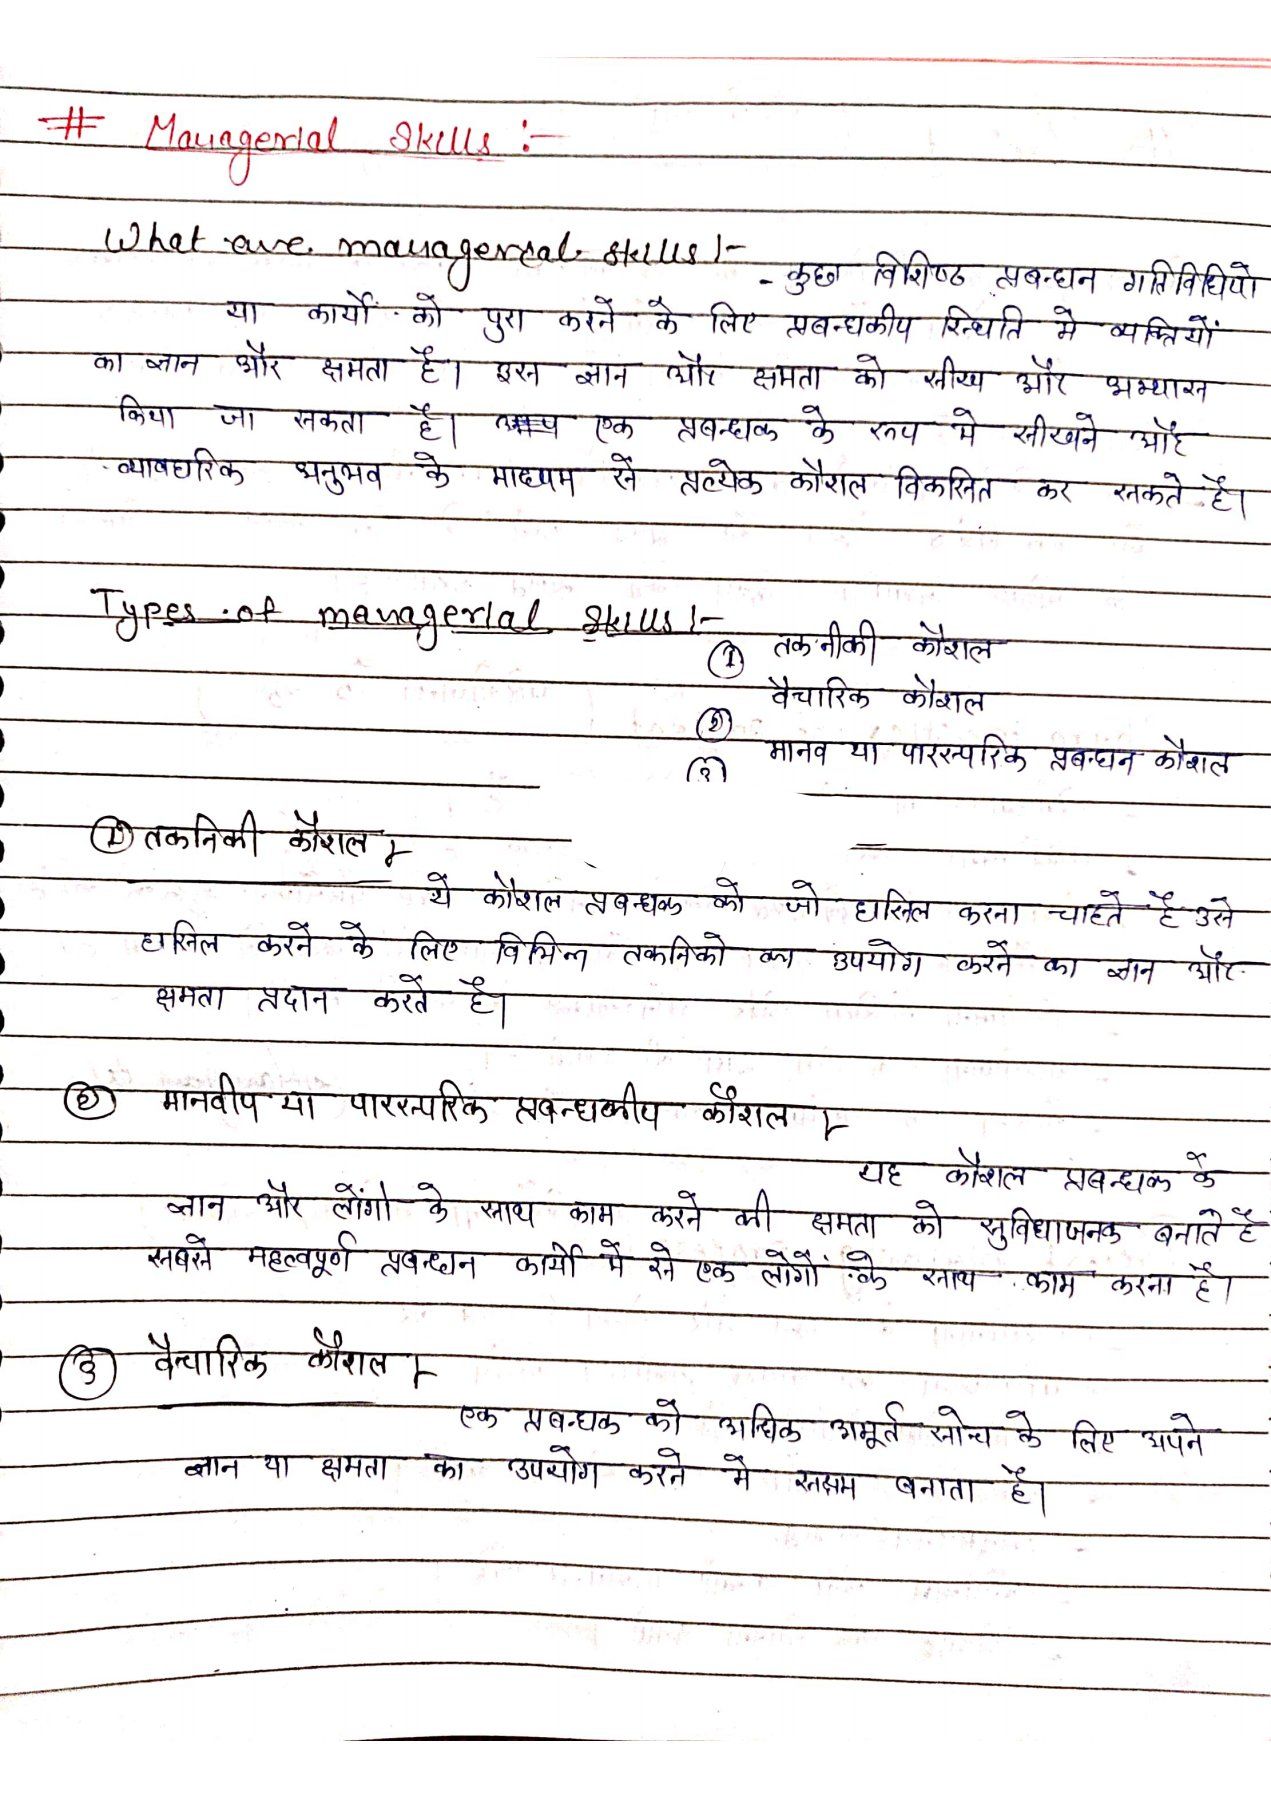 # Managerial Skills :-
What are managerial skills :-
- कुछ विशिष्ठ प्रबन्धन गतिविधियो
या कार्यो को पुरा करने के लिए प्रबन्धकीय स्थिति मे व्यक्तियों
का ज्ञान और क्षमता है। इस ज्ञान और क्षमता को सीख और अभ्यास
किया जा सकता है। एक प्रबन्धक के रूप मे सीखने और
व्यावहारिक अनुभव के माध्यम से प्रत्येक कौशल विकसित कर सकते है।
Types of managerial skills :-
① तकनीकी कौशल
② वैचारिक कौशल
③ मानव या पारस्परिक प्रबन्धन कौशल
① तकनिकी कौशल :-
ये कौशल प्रबन्धक को जो हासिल करना चाहते है उसे
हासिल करने के लिए विभिन्न तकनिको का उपयोग करने का ज्ञान और
क्षमता प्रदान करते है।
② मानवीय या पारस्परिक प्रबन्धकीय कौशल :-
यह कौशल प्रबन्धक के
ज्ञान और लोंगो के साथ काम करने की क्षमता को सुविधाजनक बनाते है
सबसे महत्वपूर्ण प्रबन्धन कार्यो में से एक लोगों के साथ काम करना है।
③ वैचारिक कौशल :-
एक प्रबन्धक को अधिक अमूर्त सोच के लिए अपने
ज्ञान या क्षमता का उपयोग करने में सक्षम बनाता है।